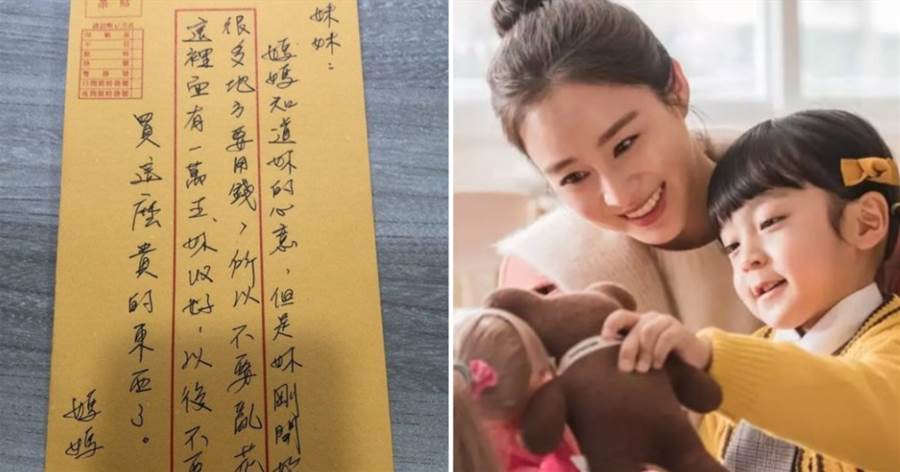 妹妹：
媽媽知道妹的心意，但是妹剛開
很多地方要用錢，所以不要亂花
這裡面有一萬五、妹收好，以後不
買這麼貴的東西了。
媽媽